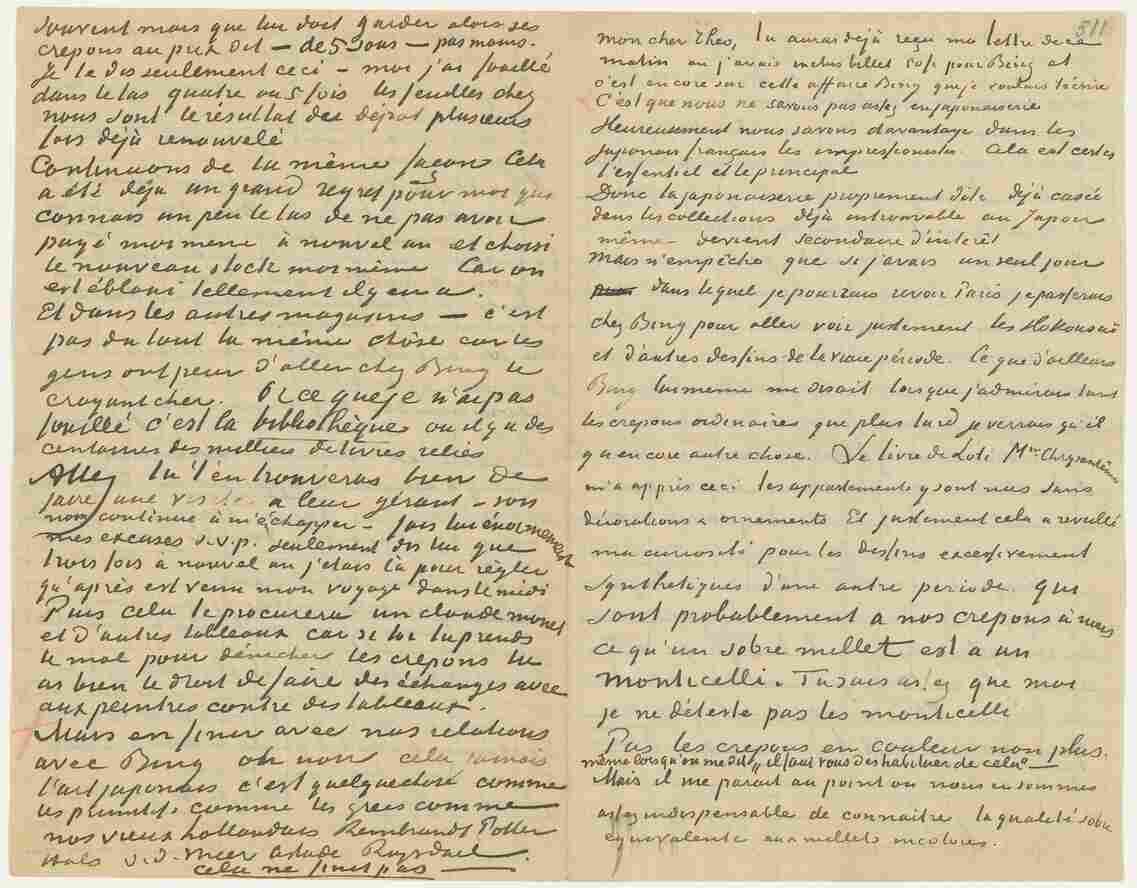 souvent mais que lui doit garder alors ses
crepons au prix dit – de 5 sous – pas moins.
Je te dis seulement ceci – moi j'ai fouillé
dans le tas quatre ou 5 fois les feuilles chez
nous sont le résultat du dépot plusieurs
fois déjà renouvelé
Continuons de la même façon Cela
a été déjà un grand regret pour moi qui
connais un peu le tas de ne pas avoir
payé moi meme à nouvel an et choisi
le nouveau stock moi même Car on
est ébloui tellement il y en a.
Et dans les autres magasins – c'est
pas du tout la même chôse car les
gens ont peur d'aller chez Bing le
croyant cher. Or ce que je n'ai pas
fouillé c'est la bibliothèque ou il y a des
centaines des milliers de livres reliés
Allez tu t'en trouveras bien de
faire une visite a leur gérant – son
nom continue à m'échapper – fais lui énormement
mes excuses s.v.p. seulement dis lui que
trois fois à nouvel an j'etais là pour règler
qu'après est venu mon voyage dans le midi
Puis cela te procurera un claude monet
et d'autres tableaux car si toi tu prends
le mal pour dénicher les crepons tu
as bien le droit de faire des échanges avec
aux peintres contre des tableaux.
Mais en finir avec nos relations
avec Bing oh non cela jamais
l'art japonais c'est quelquechose comme
les primitifs comme les grecs comme
nos vieux hollandais Rembrandt Potter
Hals v.d. Meer Ostade Ruysdael.
cela ne finit pas
511
mon cher Theo, tu auras déjà reçu ma lettre de ce
matin ou j'avais inclus billet 50 fr pour Bing et
c'est encore sur cette affaire Bing que je voulais t'écrire
C'est que nous ne savons pas assez en japonaiserie
Heureusement nous savons davantage dans les
Japonais français les impressionistes. Cela est certes
l'essentiel et le principal
Donc la japonaiserie proprement dite déjà casée
dans les collections déjà introuvable au Japon
même – devient secondaire d'intérêt
Mais n'empêche que si j'avais un seul jour
dans lequel je pourrais revoir Paris je passerais
chez Bing pour aller voir justement les Hokousai
et d'autres dessins de la vraie période. Ce que d'ailleurs
Bing lui meme me disait lorsque j'admirais tant
les crepons ordinaires que plus tard je verrais qu'il
y a encore autre chose. Le livre de Loti Mme Chrysantême
m'a appris ceci les appartements y sont nus sans
décorations & ornements Et justement cela a reveillé
ma curiosité pour les dessins excessivement
synthetiques d'une autre periode. qui
sont probablement à nos crepons à nous
ce qu'un sobre millet est à un
monticelli. Tu sais assez que moi
je ne déteste pas les monticelli
Pas les crepons en couleur non plus.
même lorsqu'on me dit „il faut vous dés habituer de cela" –
Mais il me parait au point ou nous en sommes
assez indispensable de connaitre la qualité sobre
équivalente aux millets incolores.